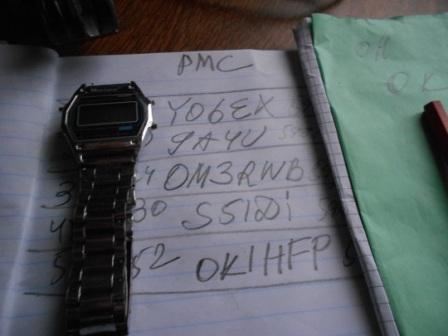 PMC
YO6EX
9A4U
OM3RWB
4
S51DI
30
52 OK1HFP
OH
OK